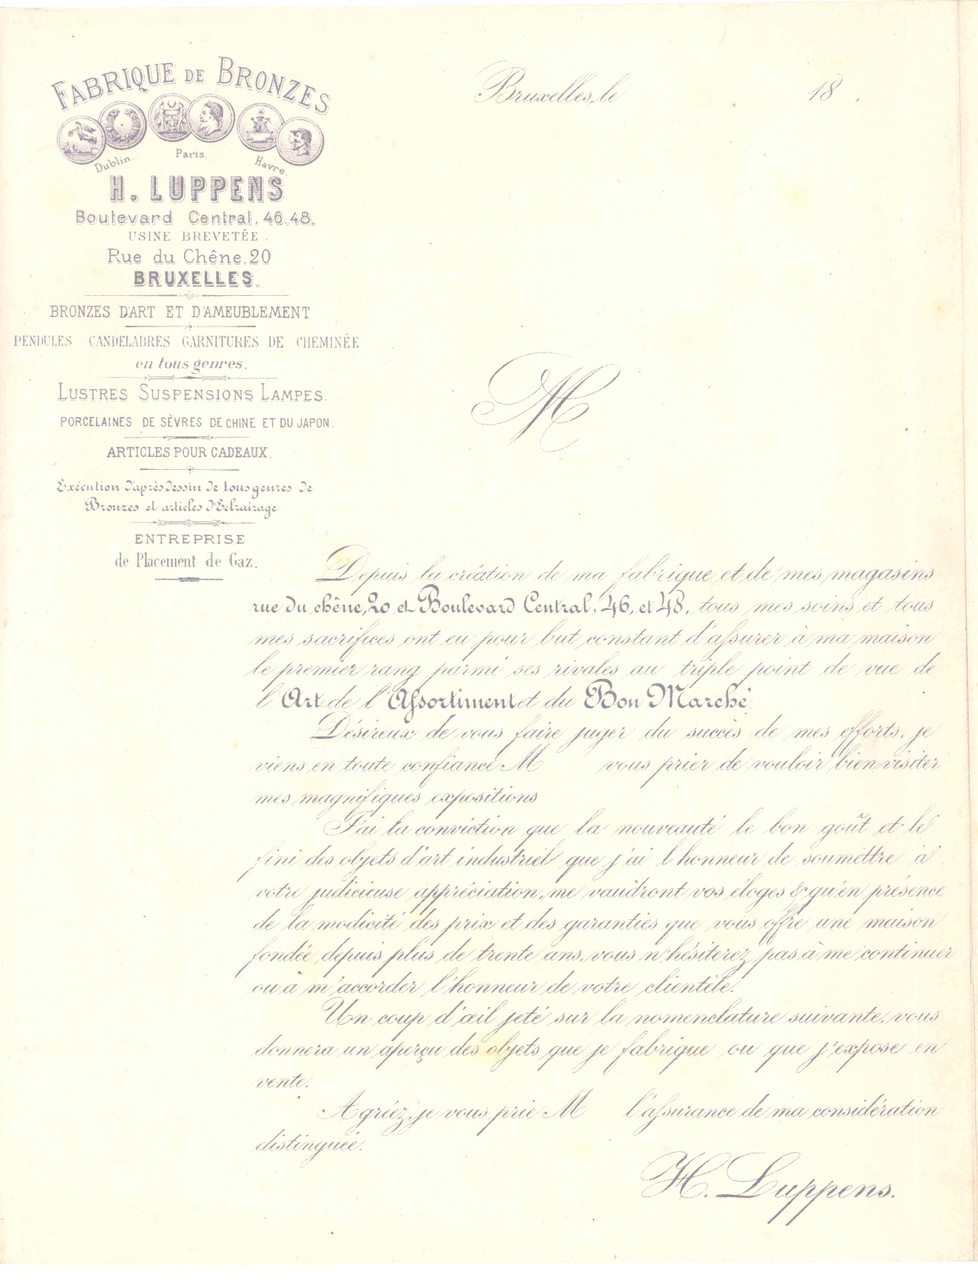 FABRIQUE DE BRONZES
Dublin. Paris. Havre
H. LUPPENS
Boulevard Central, 46.48.
USINE BREVETÉE.
Rue du Chêne, 20
BRUXELLES.
BRONZES D'ART ET D'AMEUBLEMENT
PENDULES CANDELABRES GARNITURES DE CHEMINÉE
en tous genres.
LUSTRES SUSPENSIONS LAMPES.
PORCELAINES DE SÈVRES DE CHINE ET DU JAPON.
ARTICLES POUR CADEAUX.
Exécution d'après dessin de tous genres de
Bronzes et articles d'Eclrairage
ENTREPRISE
de Placement de Gaz.
Bruxelles, le 18 .
M
Depuis la création de ma fabrique et de mes magasins
rue du chêne, 20 et Boulevard Central, 46, et 48, tous mes soins et tous
mes sacrifices ont eu pour but constant d'assurer à ma maison
le premier rang parmi ses rivales au triple point de vue de
l'Art de l'Assortiment et du Bon Marché.
Désireux de vous faire juger du succès de mes efforts, je
viens en toute confiance M vous prier de vouloir bien visiter
mes magnifiques expositions
J'ai la conviction que la nouveauté le bon goût et le
fini des objets d'art industriel que j'ai l'honneur de soumettre à
votre judicieuse appréciation, me vaudront vos éloges & qu'en présence
de la modicité des prix et des garanties que vous offre une maison
fondée depuis plus de trente ans, vous n'hésiterez pas à me continuer
ou à m'accorder l'honneur de votre clientèle.
Un coup d'œil jeté sur la nomenclature suivante, vous
donnera un aperçu des objets que je fabrique ou que j'expose en
vente.
Agréez, je vous prie M l'assurance de ma considération
distinguée.
H. Luppens.